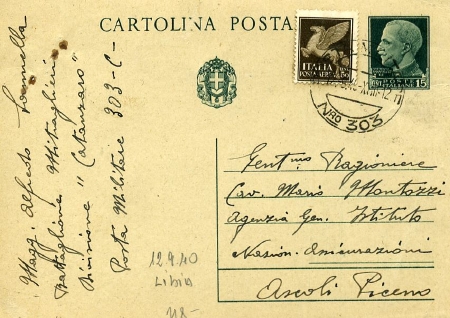 CARTOLINA POSTA
ITALIA
POSTA AEREA
15
NRO 303
Magg. Alfredo
Battaglione Mitraglieri
Divisione "Catanzaro"
Posta Militare 303-C-
Gent mo Ragioniere
Cav. Mario Montozzi
Agenzia Gen. Istituto
Nazion. Assicurazioni
Ascoli Piceno
12.9.40
Libia